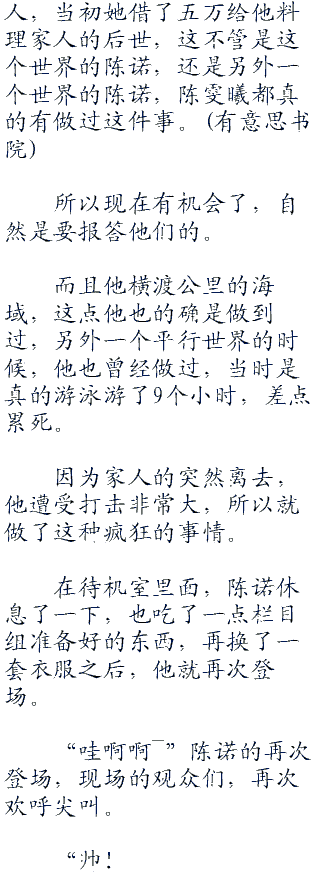 人，当初她借了五万给他料
理家人的后世，这不管是这
个世界的陈诺，还是另外一
个世界的陈诺，陈雯曦都真
的有做过这件事。(有意思书
院)
所以现在有机会了，自
然是要报答他们的。
而且他横渡公里的海
域，这点他也的确是做到
过，另外一个平行世界的时
候，他也曾经做过，当时是
真的游泳游了9个小时，差点
累死。
因为家人的突然离去，
他遭受打击非常大，所以就
做了这种疯狂的事情。
在待机室里面，陈诺休
息了一下，也吃了一点栏目
组准备好的东西，再换了一
套衣服之后，他就再次登
场。
“哇啊啊¯”陈诺的再次
登场，现场的观众们，再次
欢呼尖叫。
“帅！